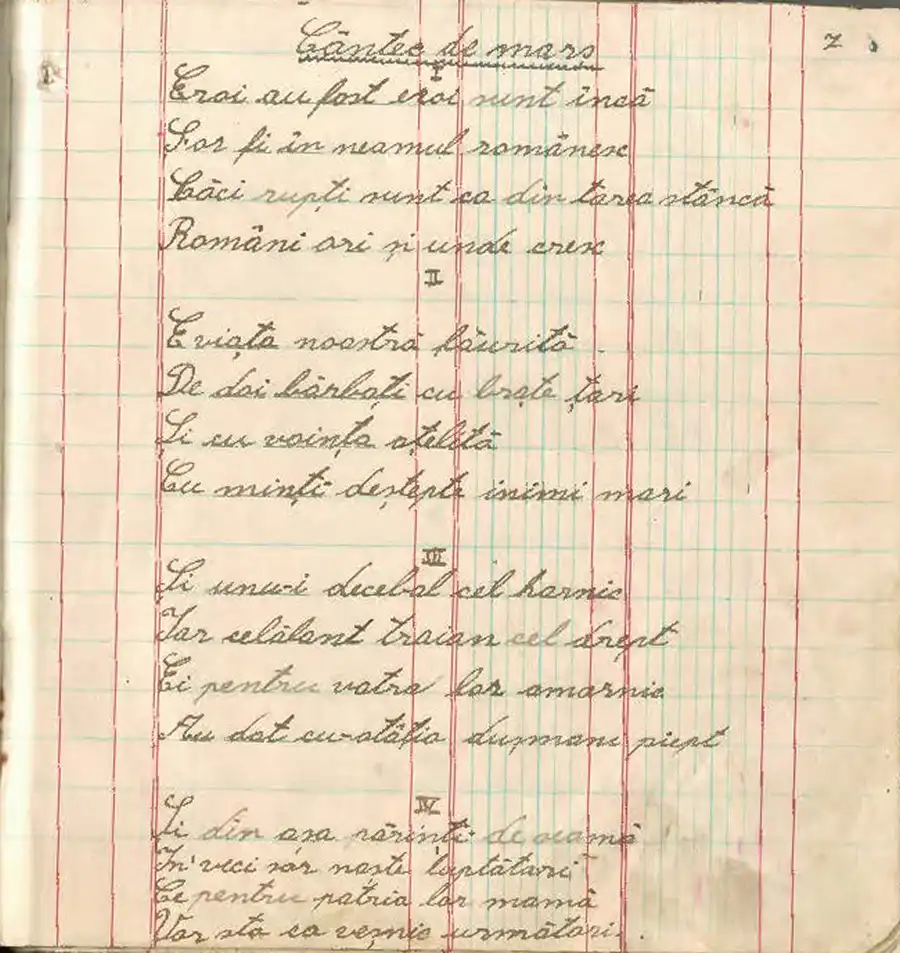 Cântec de marș
7
I
Eroi au fost eroi sunt încă
S'or fi în neamul românesc
Căci rupți sunt ca din tarea stâncă
Români ori și unde cresc
II
E viața noastră făurită
De doi bărbați cu brațe țari
Și cu voința oțelită
Cu minți deștepte inimi mari
III
Și unu-i decebal cel harnic
Iar celălant traian cel drept
Ei pentru vatra lor amarnic
Au dat cu-atâția dușmani piept
IV
Și din așa părinți de seamă
În veci sor naște luptători
Ce pentru patria lor mamă
Vor sta ca veșnic următori.